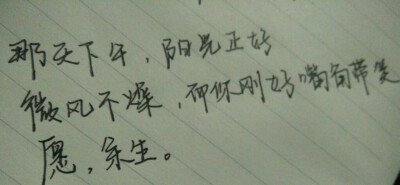 那天下午，阳光正好
微风不燥，而你刚好嘴角带笑
愿，余生。